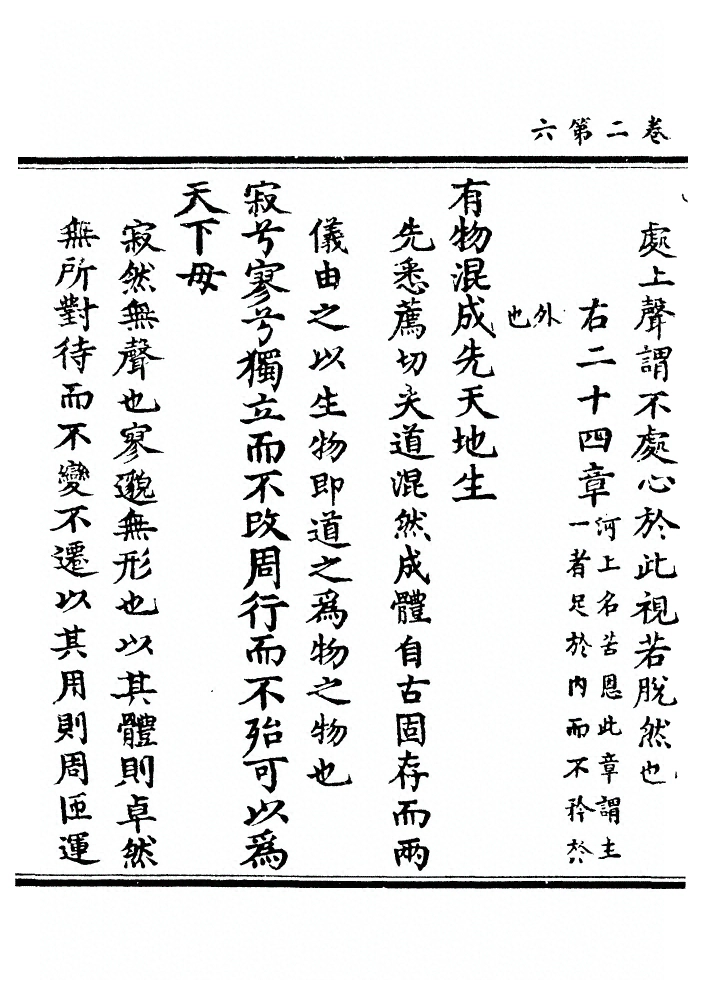 卷二第六
處上聲謂不處心於此視若脫然也
右二十四章
河上名苦恩此章謂主
一者足於內而不矜於
外也
有物混成先天地生
先悉薦切夫道混然成體自古固存而兩
儀由之以生物即道之為物之物也
寂兮寥兮獨立而不改周行而不殆可以為
天下母
寂然無聲也寥邈無形也以其體則卓然
無所對待而不變不遷以其用則周匝運